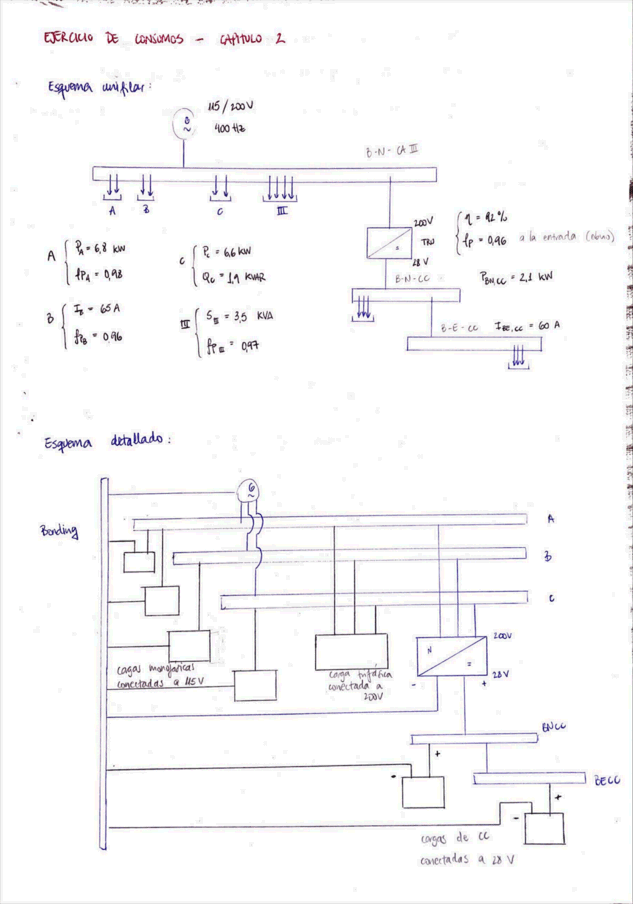 EJERCICIO DE CONSUMOS – CAPÍTULO 2
Esquema unifilar:
115/200V
400 Hz
G
~
B-N-CA III
A
B
C
III
200V
TRU
=
28 V
η = 92%
fp = 0,96 a la entrada (obvio)
A { P_A = 6,8 kW
fp_A = 0,98
C { P_C = 6,6 kW
Q_C = 1,9 kVAR
B { I_B = 65 A
fp_B = 0,96
III { S_III = 3,5 kVA
fp_III = 0,97
B-N-CC
P_BN,CC = 2,1 kW
B-E-CC I_BE,CC = 60 A
Esquema detallado:
Bonding
G
~
A
B
C
N
=
200V
28V
-
+
cargas monofásicas
conectadas a 115V
carga trifásica
conectada a
200V
BNCC
+
-
BECC
+
-
cargas de CC
conectadas a 28 V